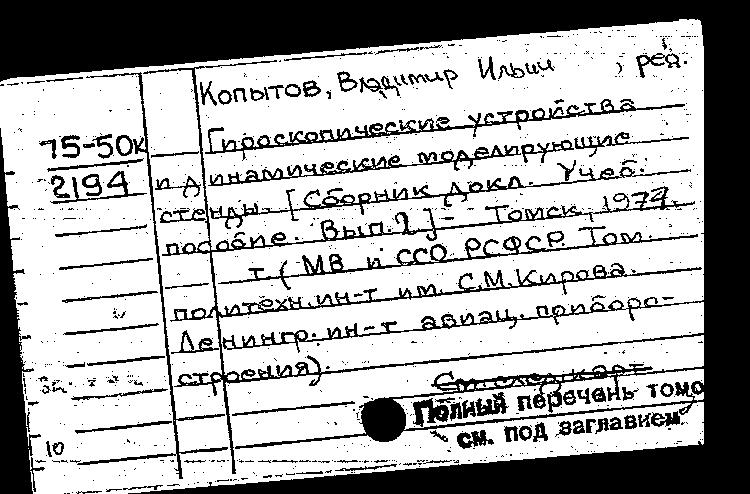 Копытов, Владимир Ильич , ред.
75-50к
2194
Гироскопические устройства
и динамические моделирующие
стенды. [Сборник докл. Учеб.
пособие. Вып. 2] - Томск, 1974.
т. (МВ и ССО РСФСР. Том.
политехн. ин-т им. С.М. Кирова.
Ленингр. ин-т авиац. приборо-
строения).
См. след. карт
Полный перечень томо
см. под заглавием
10